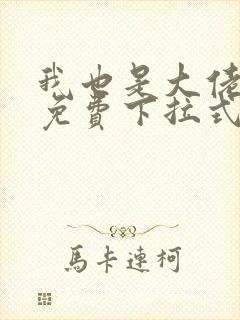 我也是大佬
免費下拉式
馬卡連柯